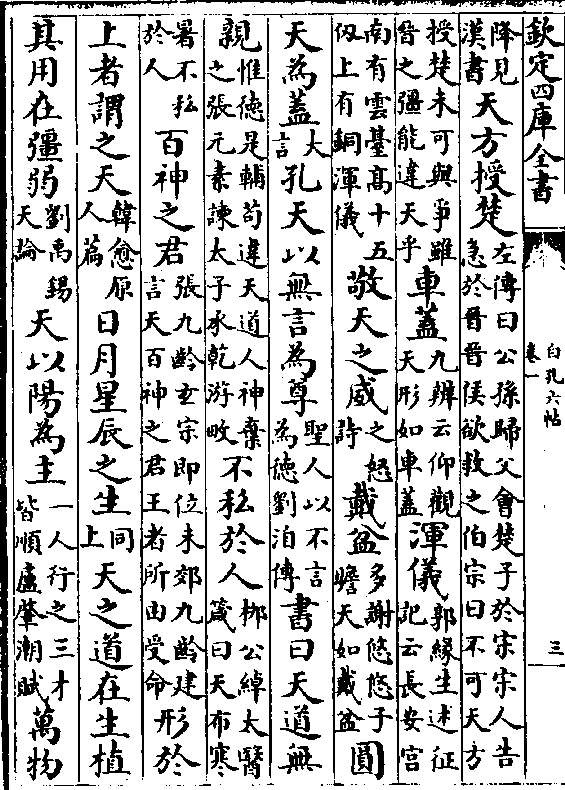 欽定四庫全書
白孔六帖
卷一
三
降見漢書天方授楚左傳曰公孫歸父會楚子於宋宋人告急於晉晉侯欲救之伯宗曰不可天方
授楚未可與爭雖晉之彊能違天乎車蓋九辨云仰觀天形如車蓋渾儀郭緣生述征記云長安宮
南有雲臺髙十五仭上有銅渾儀敬天之威之怒詩戴盆多謝悠悠子瞻天如戴盆圓
天為蓋大言孔天以無言為尊聖人以不言為德劉洎傳書曰天道無
親惟德是輔茍違天道人神棄之張元素諫太子承乾游畋不私於人栁公綽太醫箴曰天布寒
暑不私於人百神之君張九齡玄宗即位未郊九齡建言天百神之君王者所由受命形於
上者謂之天韓愈原人篇日月星辰之生同上天之道在生植
其用在彊弱劉禹錫天論天以陽為主一人行之三才皆順盧肇潮賦萬物